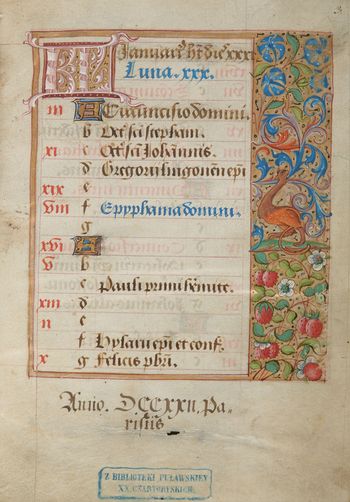 3
KL Januari' ht die xxxi
Luna. xxx.
iii A Circuncisio domini.
b Oct' sci stephani.
xi c Oct' sci Johannis.
d Gregorii lingonen epi
xix e
viii f Epyphania domini.
g
xvi A
v b
c Pauli primi heremite.
xiii d
ii e
f Hylarii epi et conf.
x g Felicis pbri.
Anno. DCCXXII. Pa-
risiis
Z BIBLIOTEKI PUŁAWSKIEY
XX. CZARTORYSKICH.